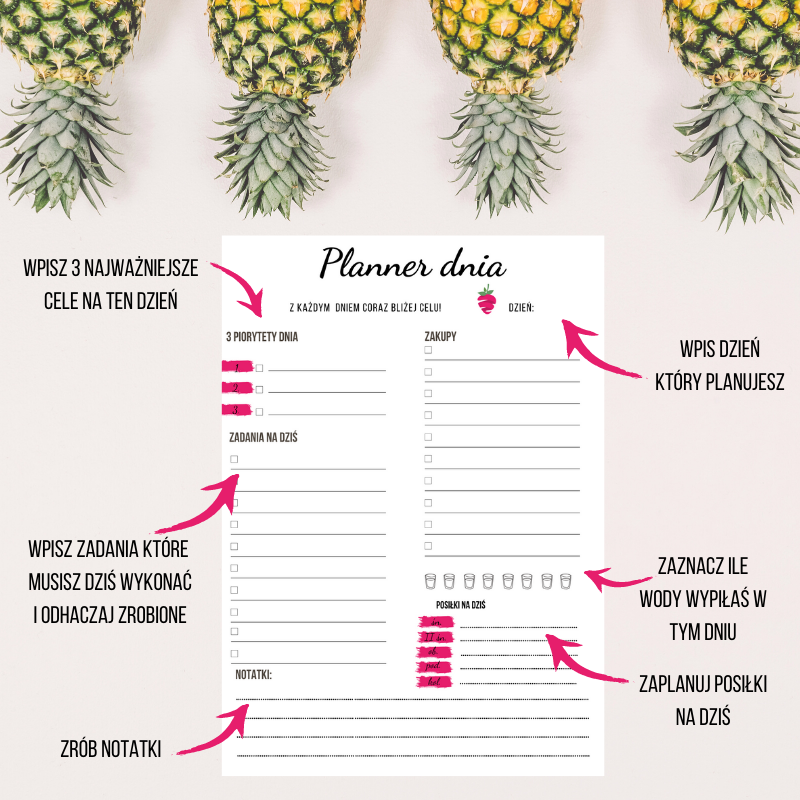 WPISZ 3 NAJWAŻNIEJSZE
CELE NA TEN DZIEŃ
Planner dnia
Z KAŻDYM DNIEM CORAZ BLIŻEJ CELU!
DZIEŃ:
WPIS DZIEŃ
KTÓRY PLANUJESZ
3 PIORYTETY DNIA
1.
2
3
ZAKUPY
ZADANIA NA DZIŚ
WPISZ ZADANIA KTÓRE
MUSISZ DZIŚ WYKONAĆ
I ODHACZAJ ZROBIONE
ZAZNACZ ILE
WODY WYPIŁAŚ W
TYM DNIU
POSIŁKI NA DZIŚ
śn.
II śn.
ob.
pod.
kol.
ZAPLANUJ POSIŁKI
NA DZIŚ
NOTATKI:
ZRÓB NOTATKI